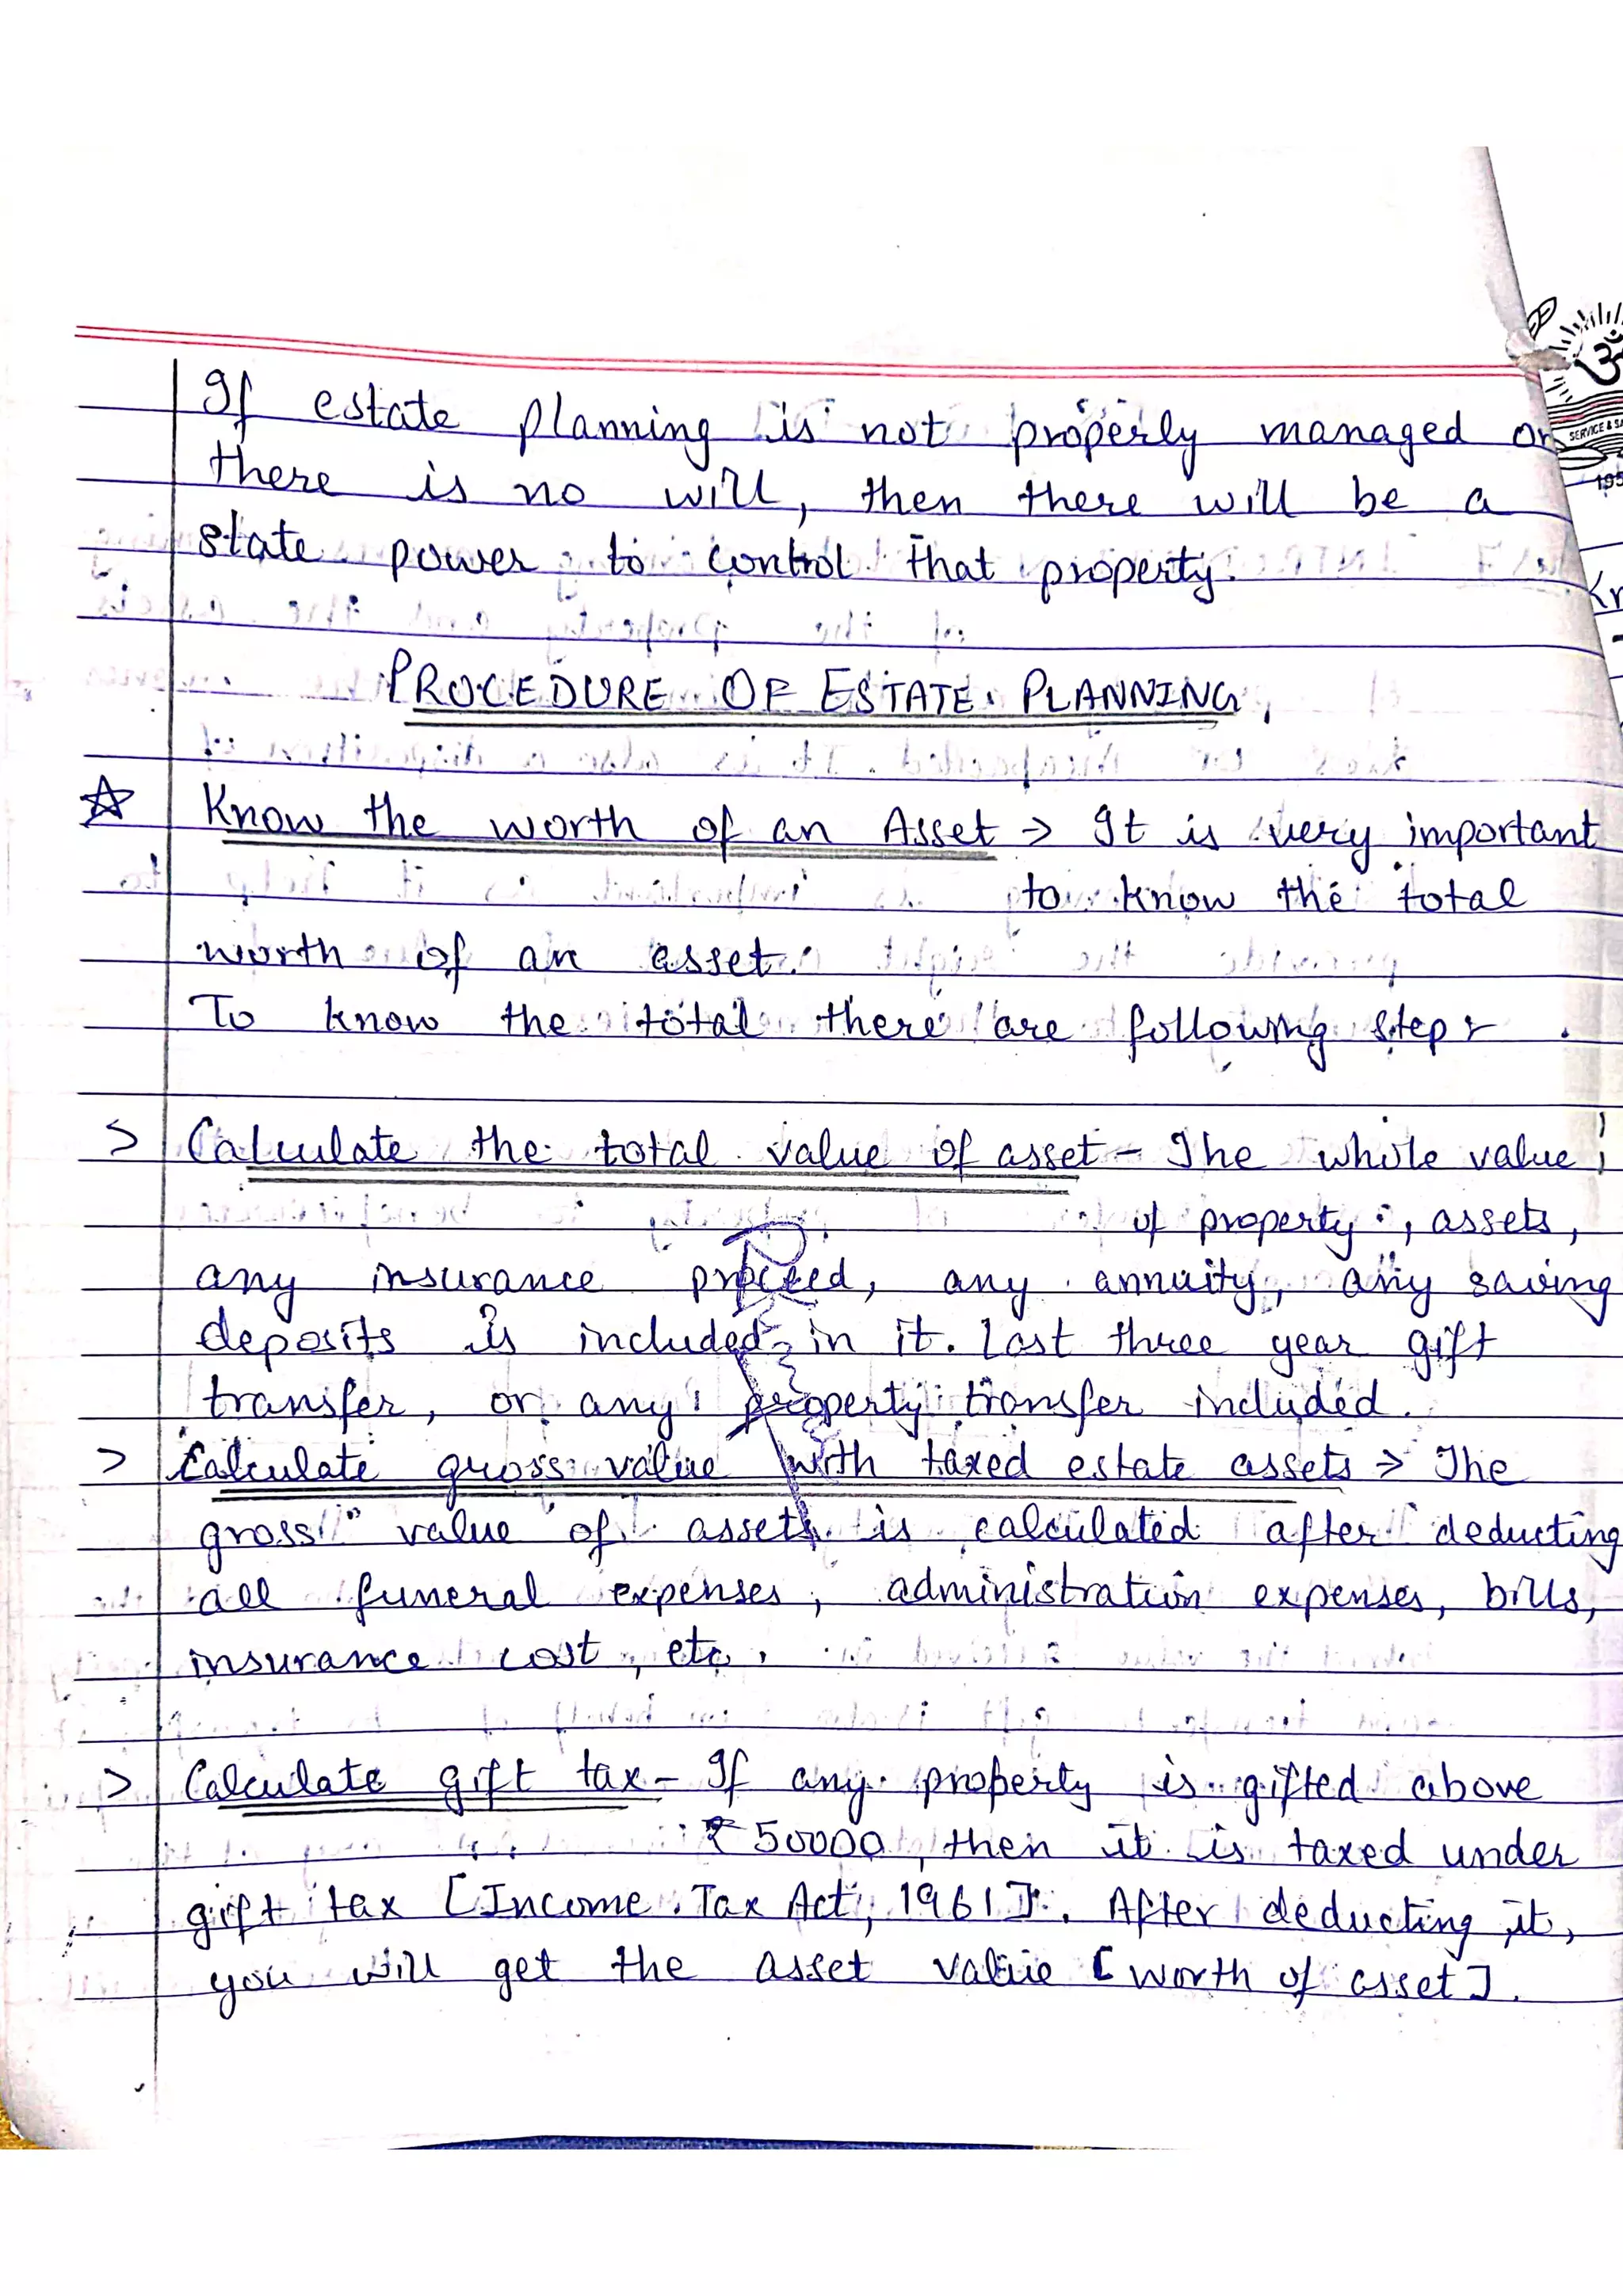 If estate planning is not properly managed or
there is no will, then there will be a
state power to control that property.
PROCEDURE OF ESTATE PLANNING.
☆ Know the worth of an Asset → It is very important
to know the total
worth of an asset.
To know the total there are following steps.
> Calculate the total value of asset - The whole value
of property, assets,
any insurance proceed, any annuity, any saving
deposits is included in it. Last three year gift
transfer, or any property transfer included.
> Calculate gross value with taxed estate assets → The
gross value of assets is calculated after deducting
all funeral expenses, administration expenses, bills,
insurance cost, etc.
> Calculate gift tax - If any property is gifted above
₹50000, then it is taxed under
gift tax [Income Tax Act, 1961]. After deducting it,
you will get the asset value [worth of asset].
SERVICE &
195